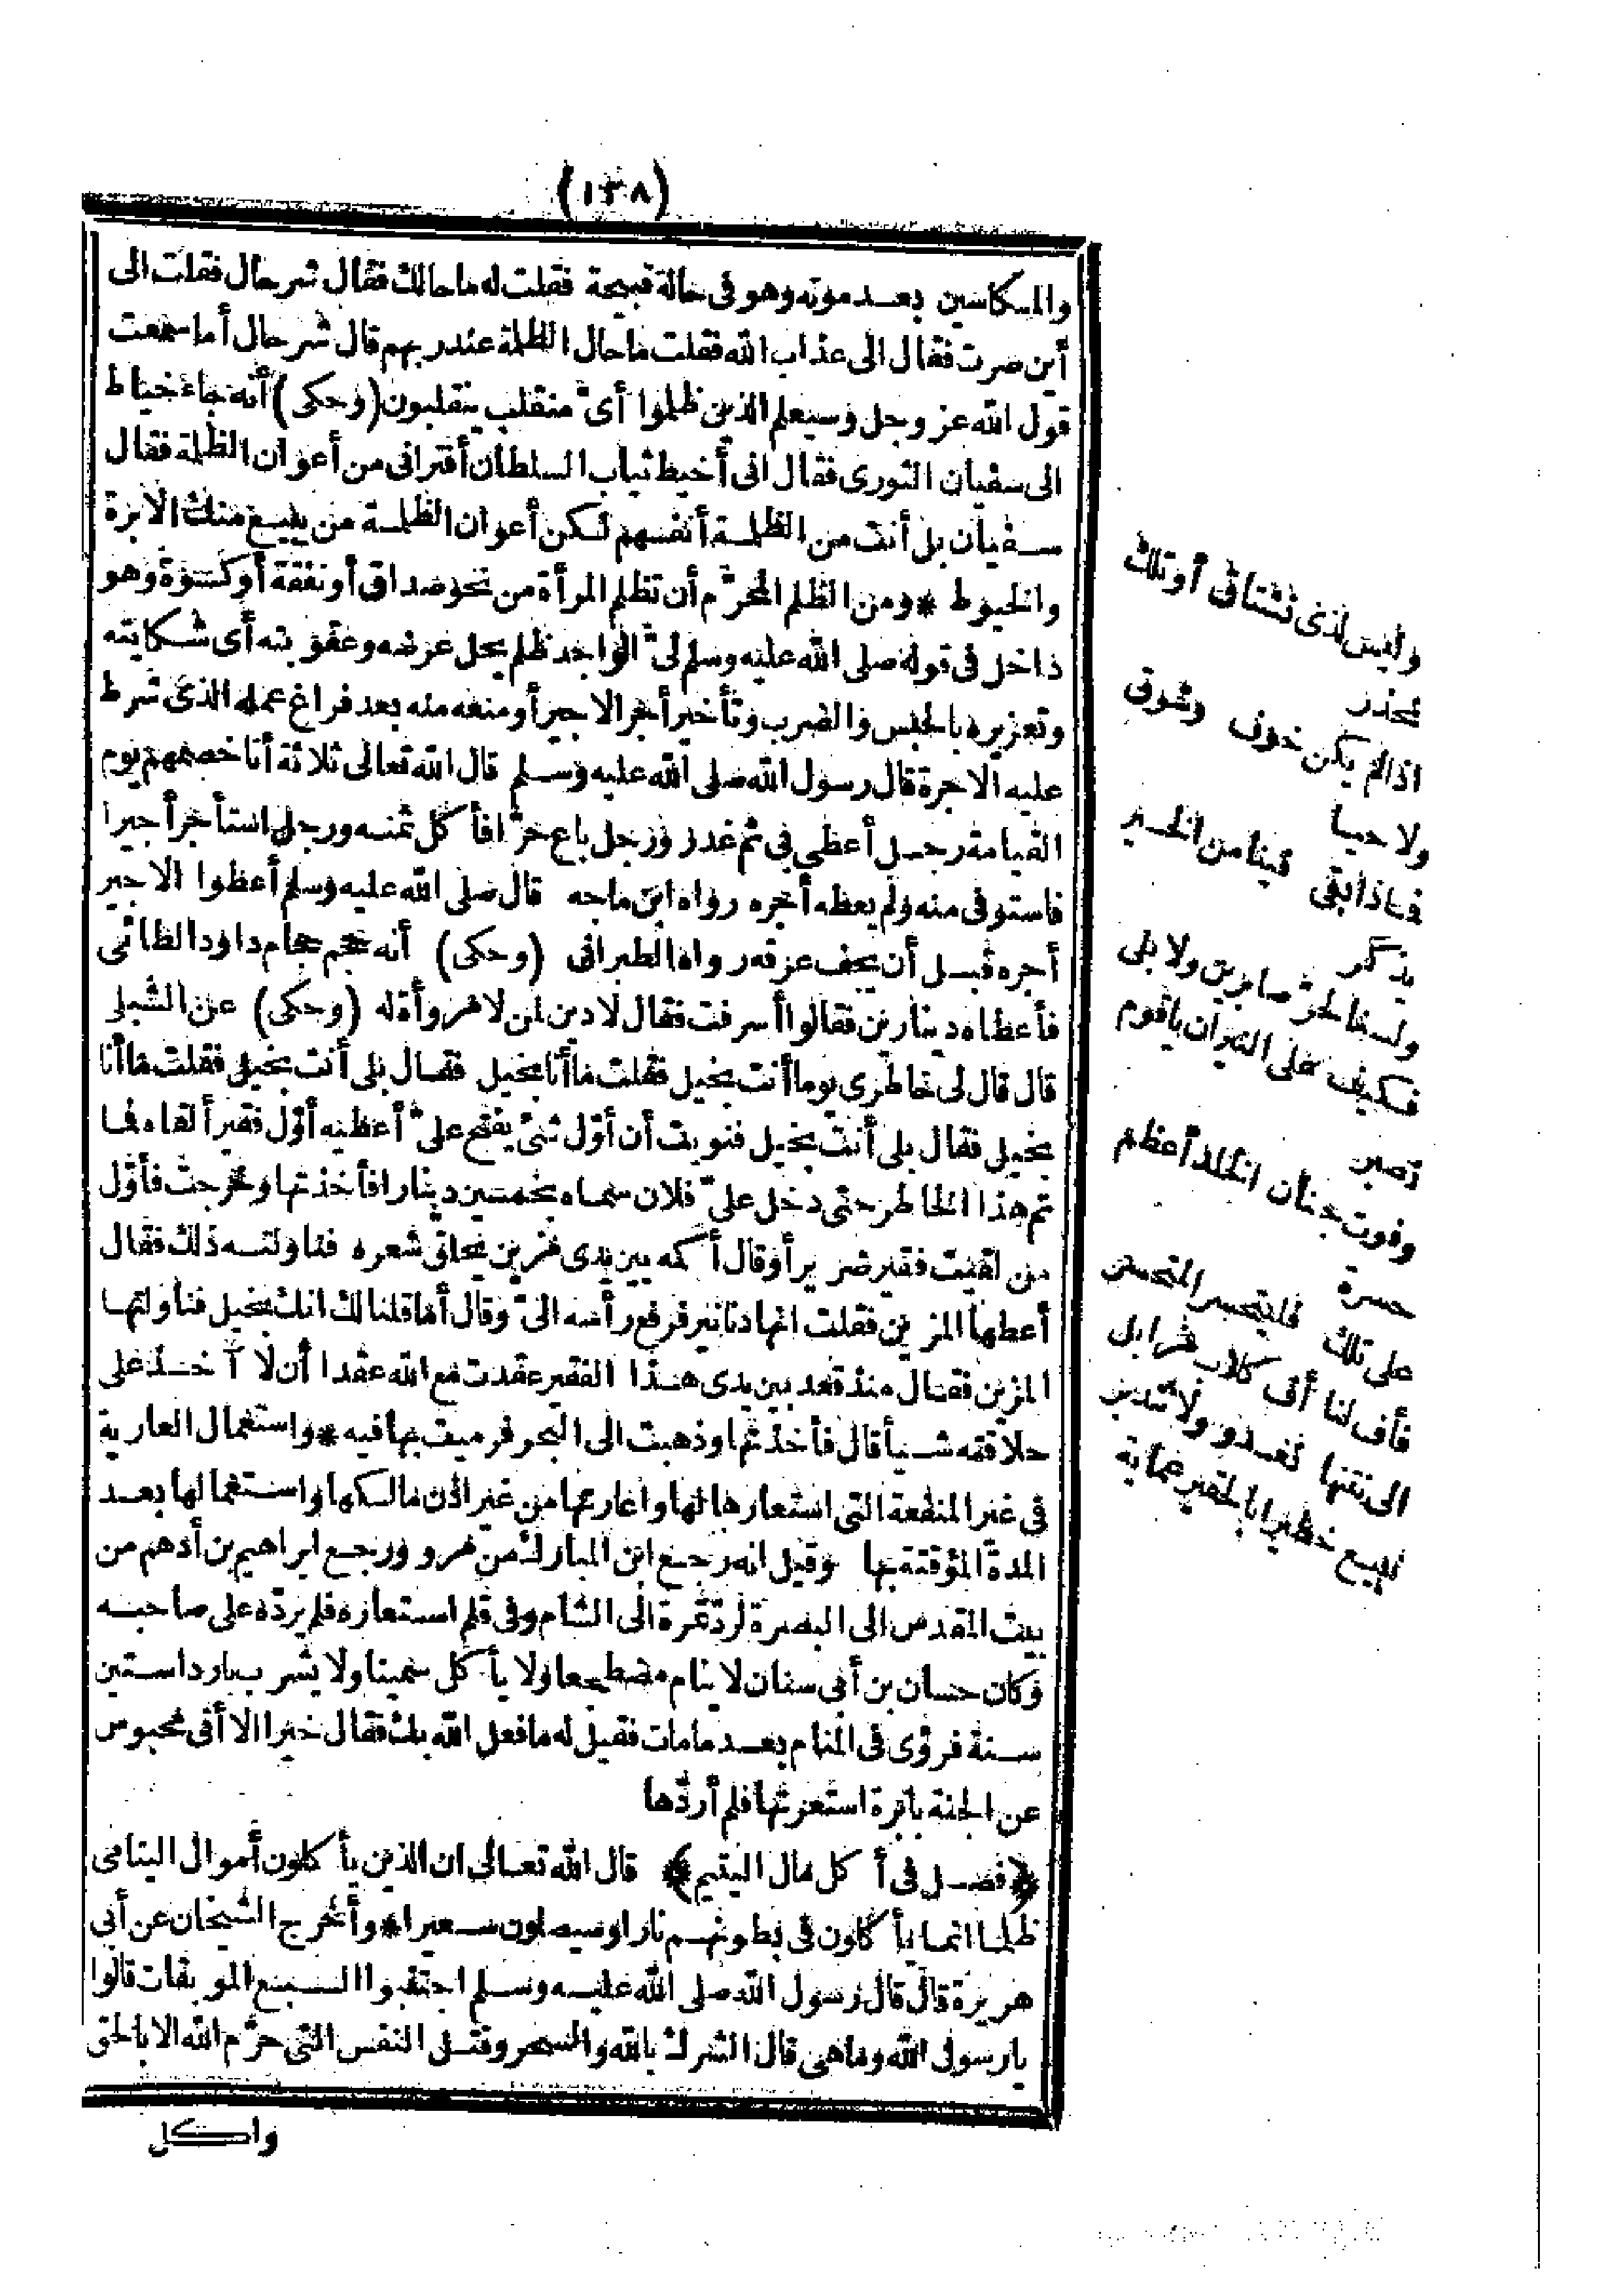 (١٣٨)
والمكاسين بعد موته وهو فى حالة قبيحة فقلت له ما حالك فقال شر حال فقلت الى
أين صرت فقال الى عذاب الله فقلت ما حال الظلمة عند ربهم قال شر حال أما سمعت
قول الله عز وجل وسيعلم الذين ظلموا أىّ منقلب ينقلبون (وحكى) أنه جاء خياط
الى سفيان الثورى فقال انى أخيط ثياب السلطان أفترانى من أعوان الظلمة فقال
سفيان بل أنت من الظلمة أنفسهم لكن أعوان الظلمة من يبيع منك الابرة
والخيوط * ومن الظلم المحرّم أن تظلم المرأة من نحو صداق أو نفقة أو كسوة وهو
داخل فى قوله صلى الله عليه وسلم لىّ الواجد ظلم يحل عرضه وعقوبته أى شكايته
وتعزيره بالحبس والضرب وتأخير أجر الاجير أو منعه منه بعد فراغ عمله الذى شرط
عليه الاجرة قال رسول الله صلى الله عليه وسلم قال الله تعالى ثلاثة أنا خصمهم يوم
القيامة رجل أعطى بى ثم غدر ورجل باع حرّا فأكل ثمنه ورجل استأجر أجيرا
فاستوفى منه ولم يعطه أجره رواه ابن ماجه قال صلى الله عليه وسلم أعطوا الاجير
أجره قبل أن يجف عرقه رواه الطبرانى (وحكى) أنه حجم حجام داود الطائى
فأعطاه دينارين فقالوا أسرفت فقال لا دين لمن لا مروأة له (وحكى) عن الشبلى
قال قال لى خاطرى يوما أنت بخيل فقلت ما أنا بخيل فقال بلى أنت بخيل فقلت ما أنا
بخيل فقال بلى أنت بخيل فنويت أن أوّل شئ يفتح علىّ أعطيه أوّل فقير ألقاه فما
تم هذا الخاطر حتى دخل علىّ فلان سماه بخمسين دينارا فأخذتها وخرجت فأوّل
من لقيت فقير ضرير أو قال أكمه بين يدى مزين يحلق شعره فناولته ذلك فقال
أعطها المزين فقلت انها دنانير فرفع رأسه الىّ وقال أما قلنا لك انك بخيل فناولتها
المزين فقال منذ قعد بين يدى هذا الفقير عقدت مع الله عقدا أن لا آخذ على
حلاقته شيأ قال فأخذتها وذهبت الى البحر فرميت بها فيه * واستعمال العارية
فى غير المنفعة التى استعارها لها واعارتها من غير اذن مالكها واستعمالها بعد
المدة المؤقتة بها وقيل انه رجع ابن المبارك من مرو ورجع ابراهيم بن أدهم من
بيت المقدس الى البصرة لردّ تمرة الى الشام وفى قلم استعاره فلم يردّه على صاحبه
وكان حسان بن أبى سنان لا ينام مضطجعا ولا يأكل سمينا ولا يشرب باردا ستين
سنة فرؤى فى المنام بعد ما مات فقيل له ما فعل الله بك فقال خيرا الا أنى محبوس
عن الجنة بابرة استعرتها فلم أردّها
﴿فصل فى أكل مال اليتيم﴾ قال الله تعالى ان الذين يأكلون أموال اليتامى
ظلما انما يأكلون فى بطونهم نارا وسيصلون سعيرا * وأخرج الشيخان عن أبى
هريرة قال قال رسول الله صلى الله عليه وسلم اجتنبوا السبع الموبقات قالوا
يا رسول الله وما هى قال الشرك بالله والسحر وقتل النفس التى حرّم الله الا بالحق
واكل
وليس لذى نشتاق أو تلك
نحذر
اذا لم يكن خوف وشوق
ولا حيا
فماذا بقى فينا من الخير
يذكر
ولسنا لحرّ صابرين ولا بلى
فكيف على النيران يا قوم
نصبر
وفوت جنان الخلد أعظم
حسرة
على تلك فليتحسر المتحسر
فأف لنا أف كلاب مزابل
الى نتنها نغدو ولا نتدبر
نبيع خطيرا بالحقير عماية